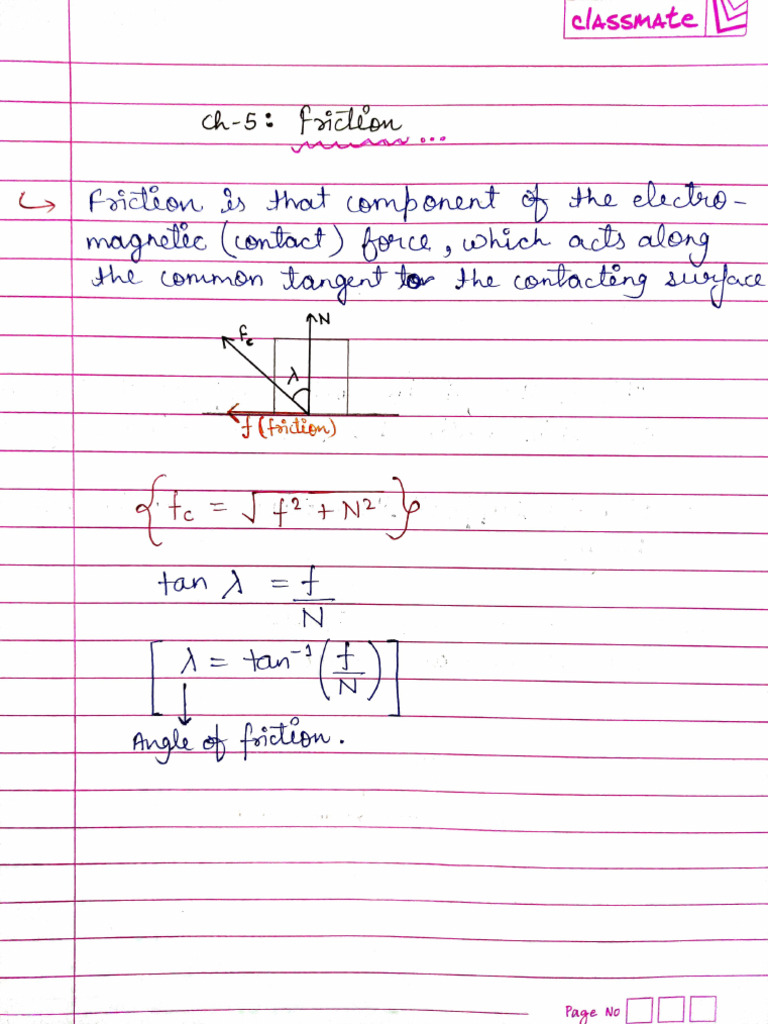 classmate
Ch-5: Friction
...
↪ Friction is that component of the electro-
magnetic (contact) force, which acts along
the common tangent to the contacting surface
N
fc
λ
f (friction)
{ fc = √(f² + N²) }
tan λ = f/N
[ λ = tan⁻¹ (f/N) ]
↓
Angle of friction.
Page No